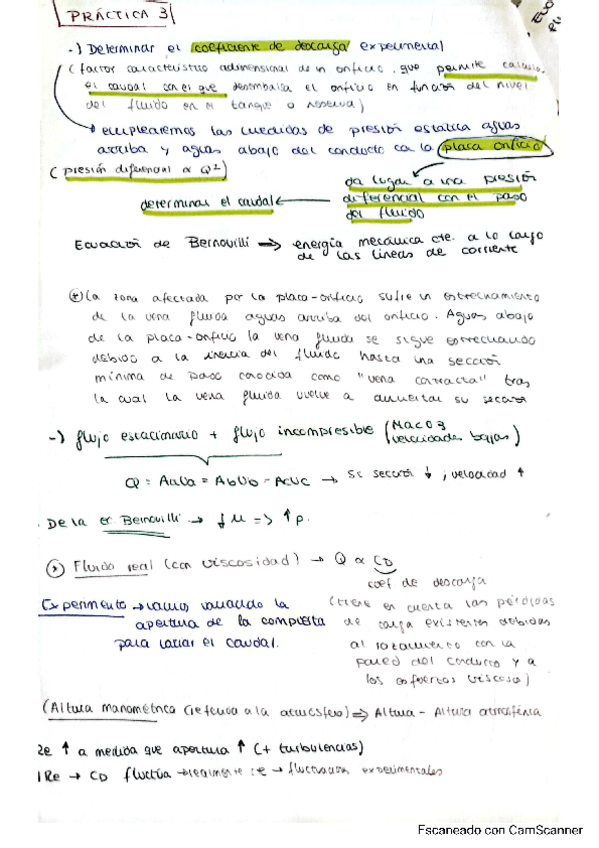 PRÁCTICA 3
-) Determinar el coeficiente de descarga experimental
(factor característico adimensional de un orificio, que permite calcular
el caudal con el que desembalsa el orificio en función del nivel
del fluido en el tanque o reserva)
emplearemos las medidas de presión estática aguas
arriba y aguas abajo del conducto con la placa orificio
(presión diferencial ∝ Q²)
da lugar a una presión
diferencial con el paso
del fluido
determinar el caudal
Ecuación de Bernouilli → energía mecánica cte. a lo largo
de las líneas de corriente
(*) La zona afectada por la placa-orificio sufre un estrechamiento
de la vena fluida aguas arriba del orificio. Aguas abajo
de la placa-orificio la vena fluida se sigue estrechando
debido a la inercia del fluido hasta una sección
mínima de paso conocida como "vena contracta" tras
la cual la vena fluida vuelve a aumentar su sección
-) flujo estacionario + flujo incompresible (M<0.3
velocidades bajas)
Q = AaUa = AbUb = AcUc → Si sección ↓ ; velocidad ↑
. De la ec Bernouilli → ↓ u => ↑ p.
Fluido real (con viscosidad) → Q ∝ CD
coef de descarga
(tiene en cuenta las pérdidas
de carga existentes debidas
al rozamiento con la
pared del conducto y a
los esfuerzos viscosos)
Experimento → vamos variando la
apertura de la compuerta
para variar el caudal.
(Altura manométrica (referida a la atmósfera) => Altura - Altura atmosférica
Re ↑ a medida que apertura ↑ (+ turbulencias)
↑Re → CD fluctúa → realmente cte → fluctuaciones experimentales
Escaneado con CamScanner